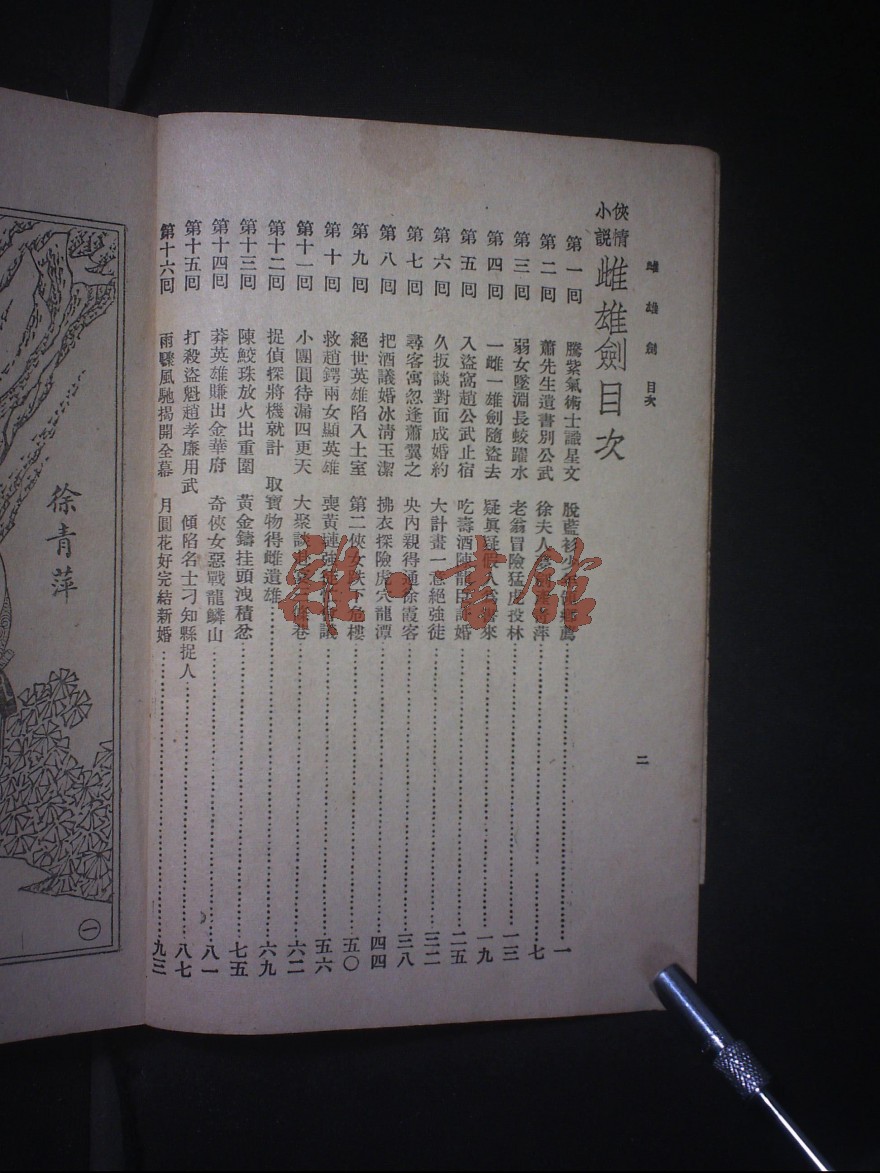 雌雄劍 目次
二
俠情小說 雌雄劍目次
第一回 騰紫氣術士識星文 脫藍衫少年 一
第二回 蕭先生遺書別公武 徐夫人 萍 七
第三回 弱女墜淵長蛟躍水 老翁冒險猛虎投林 一三
第四回 一雌一雄劍隨盜去 疑眞疑假人 來 一九
第五回 入盜窩趙公武止宿 吃壽酒陳龍 婚 二五
第六回 久扳談對面成婚約 大計畫一意絕強徒 三二
第七回 尋客寓忽逢蕭翼之 央內親得通徐霞客 三八
第八回 把酒議婚冰清玉潔 拂衣探險虎穴龍潭 四四
第九回 絕世英雄陷入土室 第二俠女跌下危樓 五〇
第十回 救趙鍔兩女顯英雄 喪黃 強徒 議 五六
第十一回 小團圓待漏四更天 大聚談 巷 六二
第十二回 捉偵探將機就計 取寶物得雌遺雄 六九
第十三回 陳鮫珠放火出重圍 黃金鑄挂頭洩積忿 七五
第十四回 莽英雄賺出金華府 奇俠女惡戰龍鱗山 八一
第十五回 打殺盜魁趙孝廉用武 傾陷名士刁知縣捉人 八七
第十六回 雨驟風馳揭開全幕 月圓花好完結新婚 九三
徐青萍
一
雜·書館